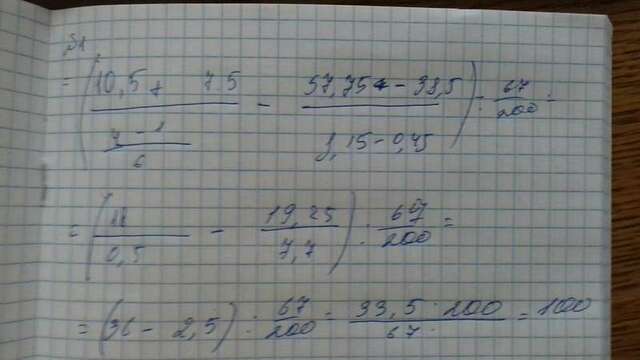 = (10,5 + 7.5 / (4 - 1 / 6) - 57,75 - 38,5 / 1,15 - 0,45) : 67/200 =
= (18/0,5 - 19,25/7,7) : 67/200 =
= (36 - 2,5) : 67/200 = 33,5 · 200 / 67 = 100